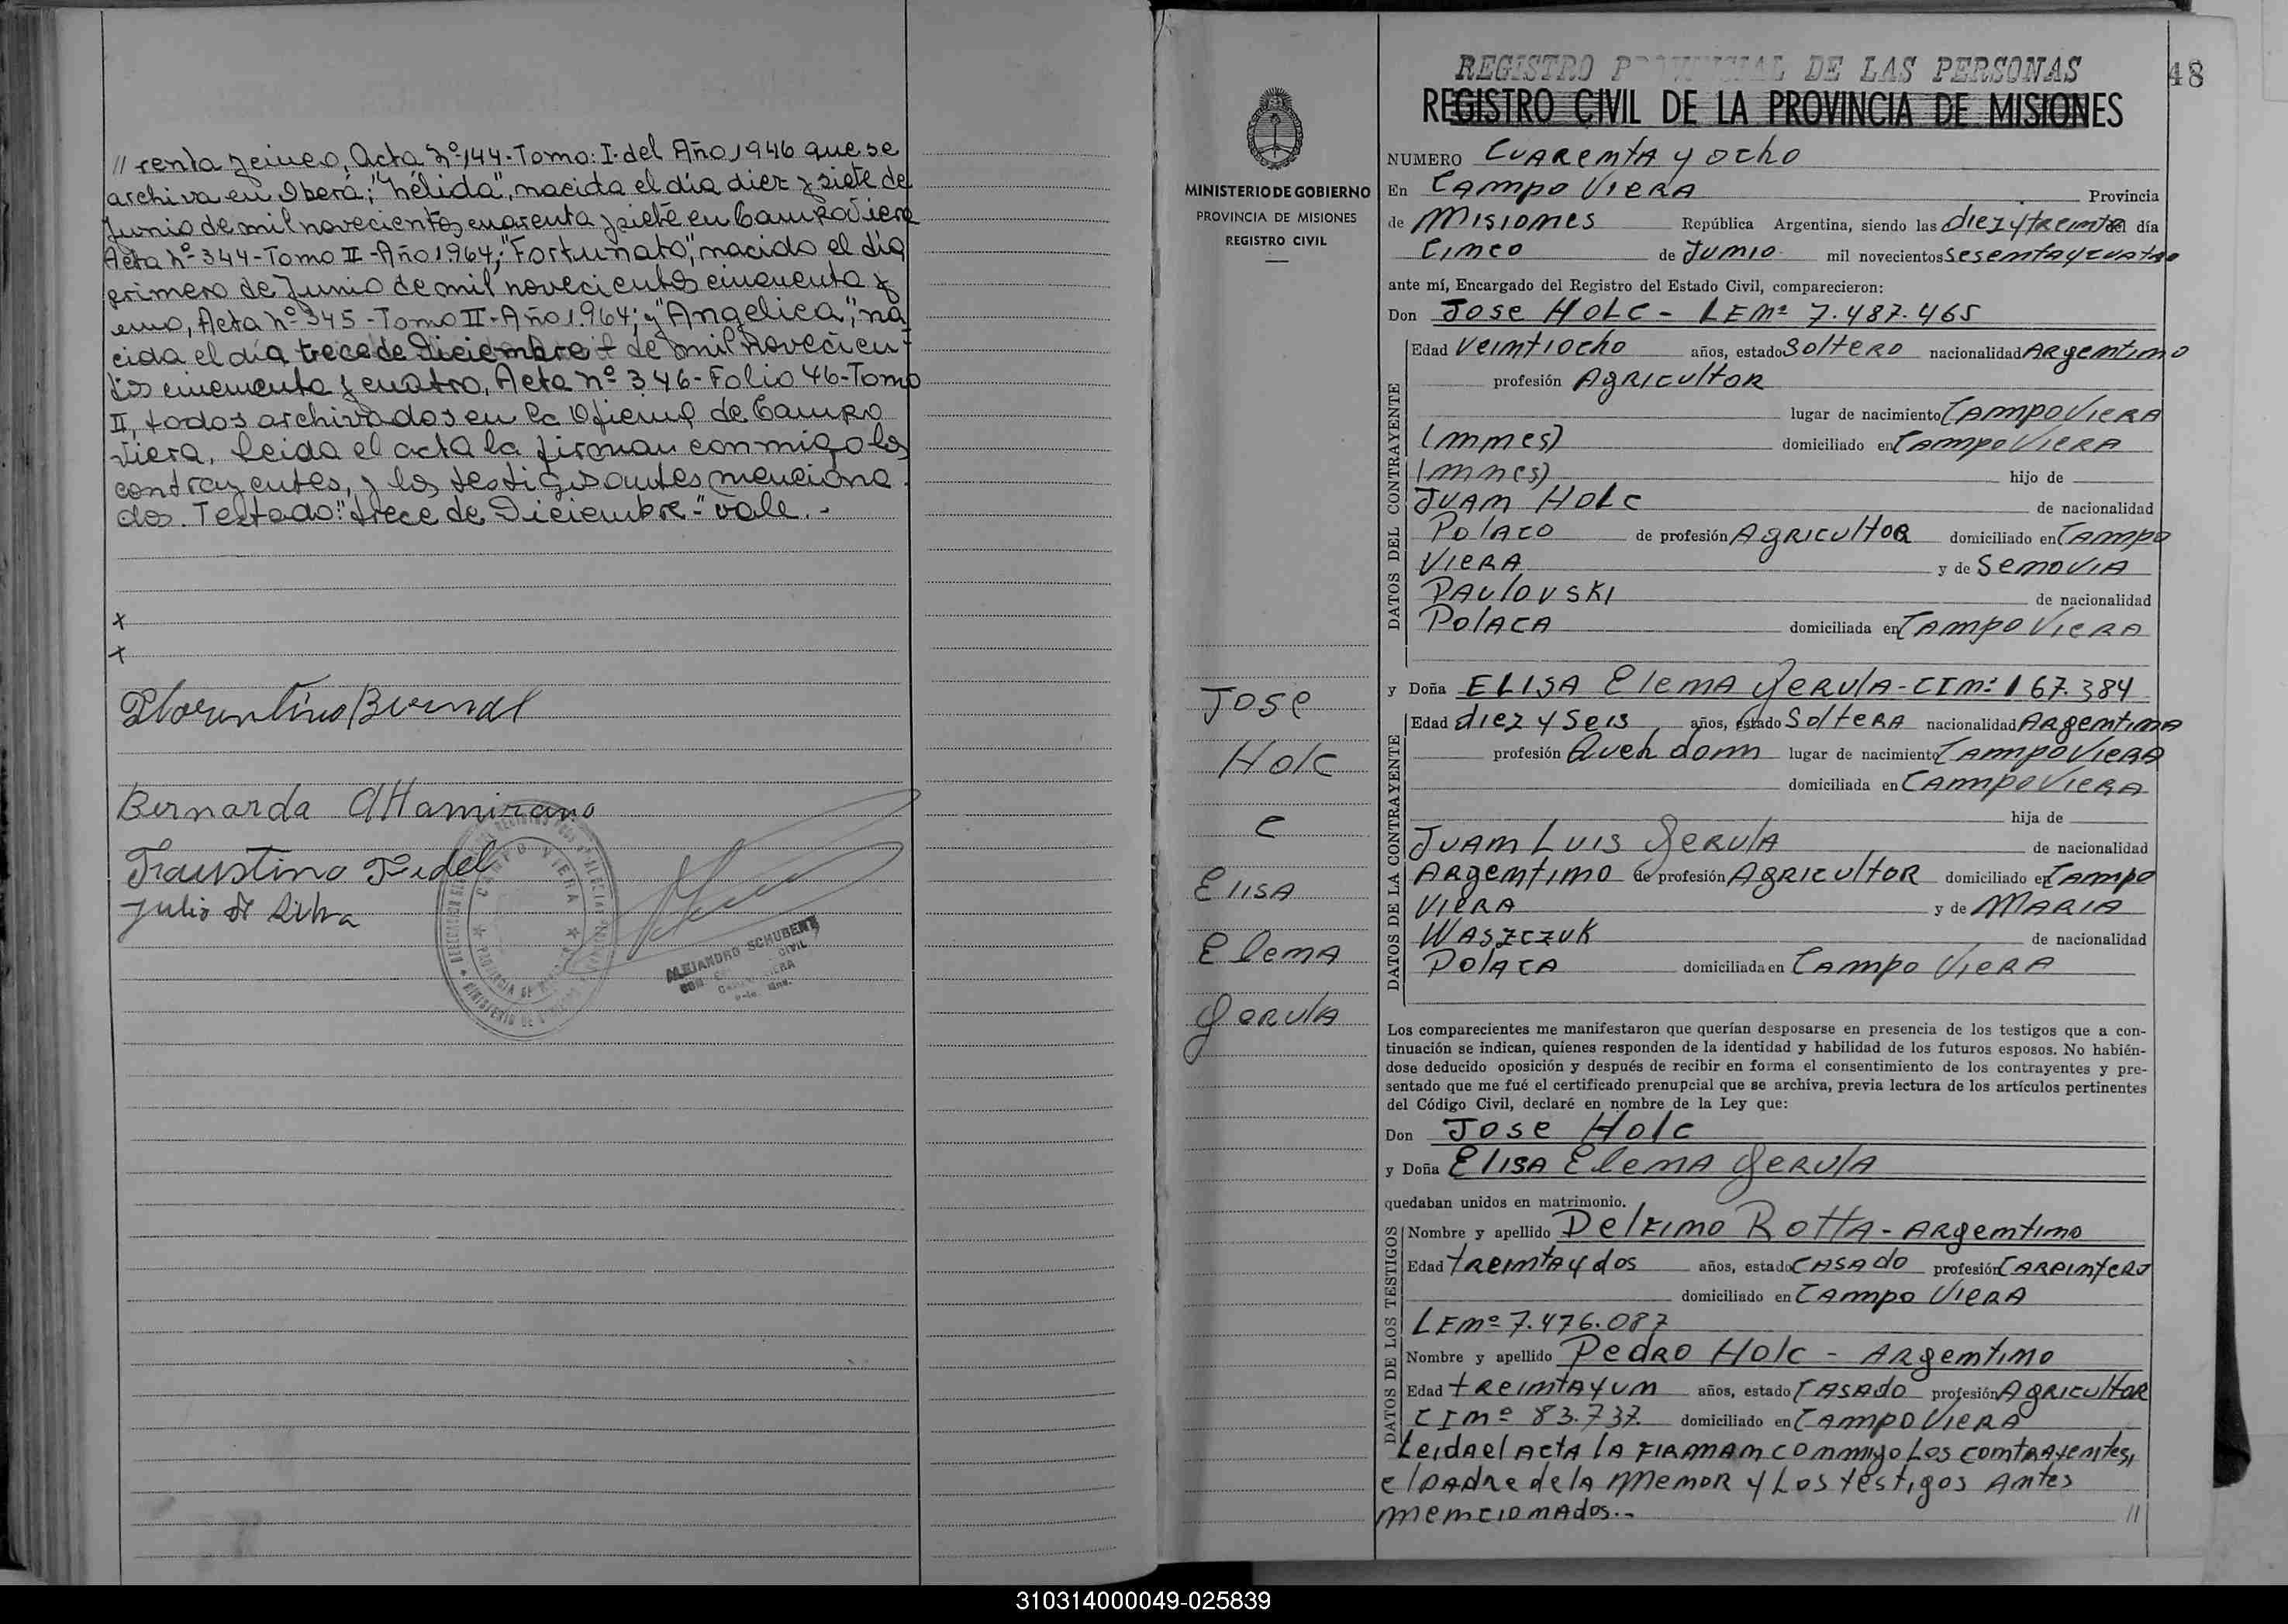 // renta y cinco, Acta Nº 144-Tomo: I-del Año 1946 que se
archiva en Oberá; "Nélida", nacida el día diez y siete de
Junio de mil novecientos cuarenta y siete en Campo Viera
Acta Nº 344-Tomo II-Año 1.964; "Fortunato", nacido el día
primero de Junio de mil novecientos cincuenta y
uno, Acta Nº 345-Tomo II-Año 1.964; y "Angelica", na
cida el día trece de Diciembre de mil novecien-
tos cincuenta y cuatro, Acta nº 346-Folio 46-Tomo
II, todos archivados en la Oficina de Campo
Viera. Leida el acta la firman conmigo los
contrayentes, y los testigos antes menciona
dos. Testado: "trece de Diciembre-" vale.-
x
x
Florentino Bernal
Bernarda Altamirano
Faustino Fidel
Julio
CAMPO VIERA
ALEJANDRO SCHUBERT
CIVIL
48
REGISTRO PROVINCIAL DE LAS PERSONAS
REGISTRO CIVIL DE LA PROVINCIA DE MISIONES
MINISTERIO DE GOBIERNO
PROVINCIA DE MISIONES
REGISTRO CIVIL
Jose
Holc
e
Elisa
Elena
Gerula
NUMERO Cuarenta y ocho
En Campo Viera Provincia
de Misiones República Argentina, siendo las diez y treinta del día
Cinco de Junio mil novecientos sesenta y cuatro
ante mí, Encargado del Registro del Estado Civil, comparecieron:
Don Jose Holc - LENº 7.487.465
DATOS DEL CONTRAYENTE
Edad Veintiocho años, estado Soltero nacionalidad Argentino
profesión Agricultor
lugar de nacimiento Campo Viera
(mnes) domiciliado en Campo Viera
(mnes) hijo de
Juan Holc de nacionalidad
Polaco de profesión Agricultor domiciliado en Campo
Viera y de Senovia
Paulovski de nacionalidad
Polaca domiciliada en Campo Viera
y Doña Elisa Elena Gerula - CINº 167.384
DATOS DE LA CONTRAYENTE
Edad diez y seis años, estado Soltera nacionalidad Argentina
profesión Queh dom lugar de nacimiento Campo Viera
domiciliada en Campo Viera
hija de
Juan Luis Gerula de nacionalidad
Argentino de profesión Agricultor domiciliado en Campo
Viera y de Maria
Waszczuk de nacionalidad
Polaca domiciliada en Campo Viera
Los comparecientes me manifestaron que querían desposarse en presencia de los testigos que a con-
tinuación se indican, quienes responden de la identidad y habilidad de los futuros esposos. No habién-
dose deducido oposición y después de recibir en forma el consentimiento de los contrayentes y pre-
sentado que me fué el certificado prenupcial que se archiva, previa lectura de los artículos pertinentes
del Código Civil, declaré en nombre de la Ley que:
Don Jose Holc
y Doña Elisa Elena Gerula
quedaban unidos en matrimonio.
DATOS DE LOS TESTIGOS
Nombre y apellido Delfino Rotta - Argentino
Edad treinta y dos años, estado casado profesión Carpintero
domiciliado en Campo Viera
LENº 7.476.087
Nombre y apellido Pedro Holc - Argentino
Edad treinta y un años, estado casado profesión Agricultor
CINº 83.737 domiciliado en Campo Viera
Leida el acta la firman conmigo los contrayentes,
el padre de la menor y los testigos antes
mencionados.- //
310314000049-025839